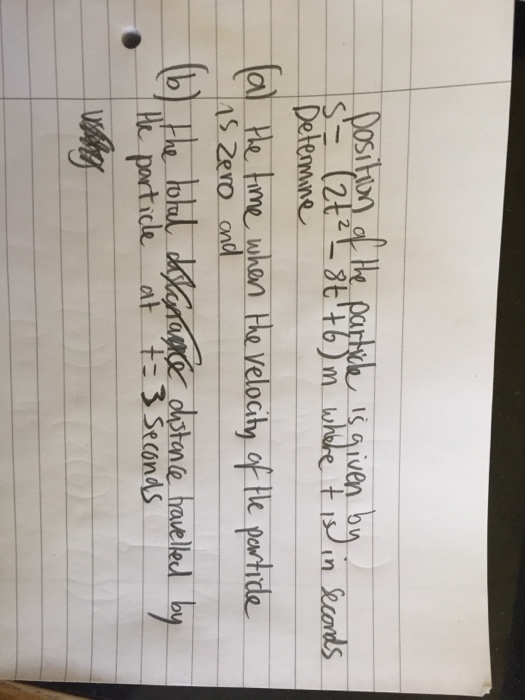 position of the particle is given by
S = (2t² - 8t + 6) m where t is in seconds
Determine
(a) the time when the velocity of the particle
is zero and
(b) the total distance travelled by
the particle at t = 3 seconds